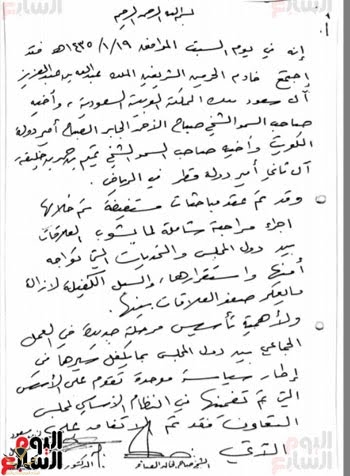 بسم الله الرحمن الرحيم
إنه في يوم السبت الموافق ١٤٣٥/١/١٩هـ فقد
اجتمع خادم الحرمين الشريفين الملك عبدالله بن عبدالعزيز
آل سعود ملك المملكة العربية السعودية، وأخيه
صاحب السمو الشيخ صباح الأحمد الجابر الصباح أمير دولة
الكويت وأخيه صاحب السمو الشيخ تميم بن حمد بن خليفة
آل ثاني أمير دولة قطر في الرياض.
وقد تم عقد مباحثات مستفيضة تم خلالها
اجراء مراجعة شاملة لما يشوب العلاقات
بين دول المجلس والتحديات التي تواجه
أمنها واستقرارها، والسبل الكفيلة لإزالة
ما يعكر صفو العلاقات بينها.
ولأهمية تأسيس مرحلة جديدة في العمل
الجماعي بين دول المجلس بما يكفل سيرها في
إطار سياسة موحدة تقوم على الأسس
التي تم تضمنها في النظام الأساسي لمجلس
التعاون فقد تم الاتفاق على
الآتي
اليوم السابع
اليوم السابع
اليوم السابع